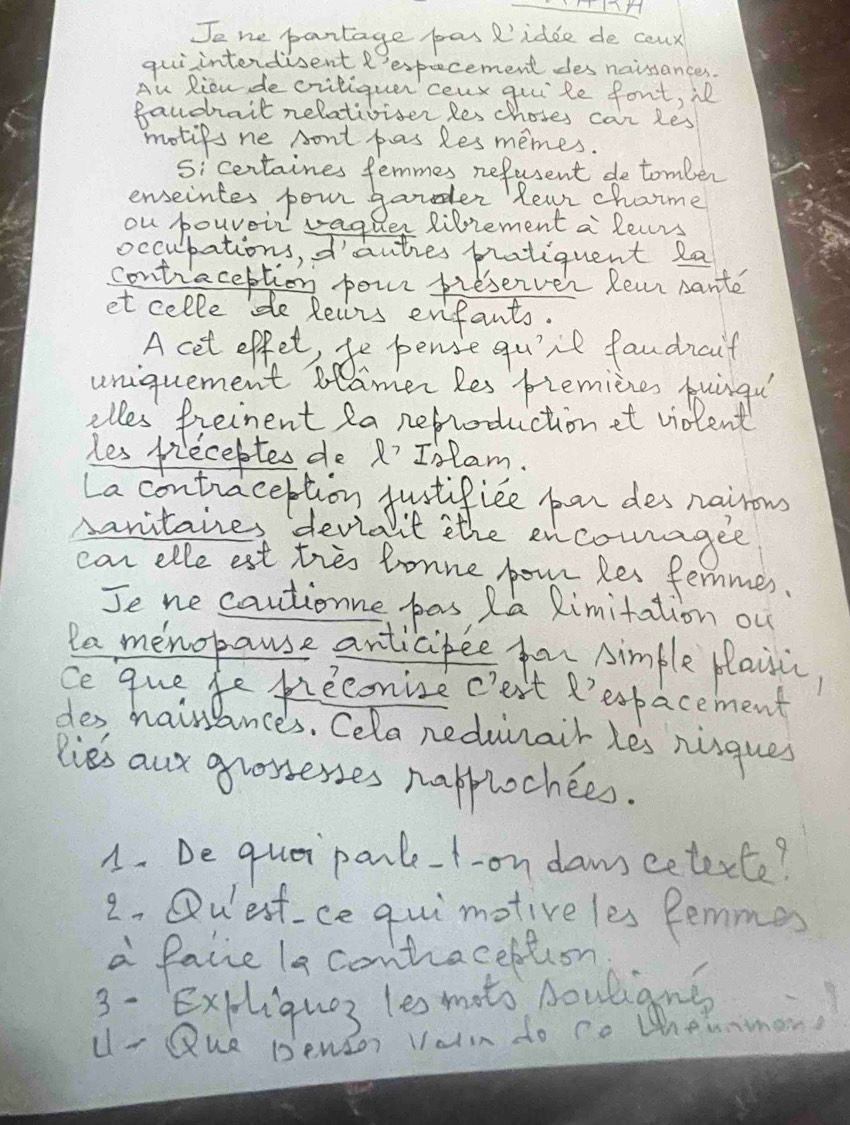 Je ne partage pas l'idée de ceux
qui interdisent l'espacement des naissances.
Au lieu de critiquer ceux qui le font, il
faudrait relativiser les choses car les
motifs ne sont pas les mêmes.
Si certaines femmes refusent de tomber
enseintes pour garder leur charme
ou pouvoir vaquer librement à leurs
occupations, d'autres pratiquent la
contraception pour préserver leur santé
et celle de leurs enfants.
A cet effet, je pense qu'il faudrait
uniquement blâmer les premières puisqu'
elles freinent la reproduction et violent
les préceptes de l'Islam.
La contraception justifiée par des raisons
sanitaires devrait être encouragée
car elle est très bonne pour les femmes.
Je ne cautionne pas la limitation ou
la ménopause anticipée par simple plaisir,
Ce que je préconise c'est l'espacement
des naissances. Cela reduirait les risques
liés aux grossesses rapprochées.
1. De quoi parle-t-on dans ce texte?
2. Qu'est-ce qui motive les femmes
à faire la contraception.
3- Expliquez les mots soulignés
4- Que pensez vous de ce